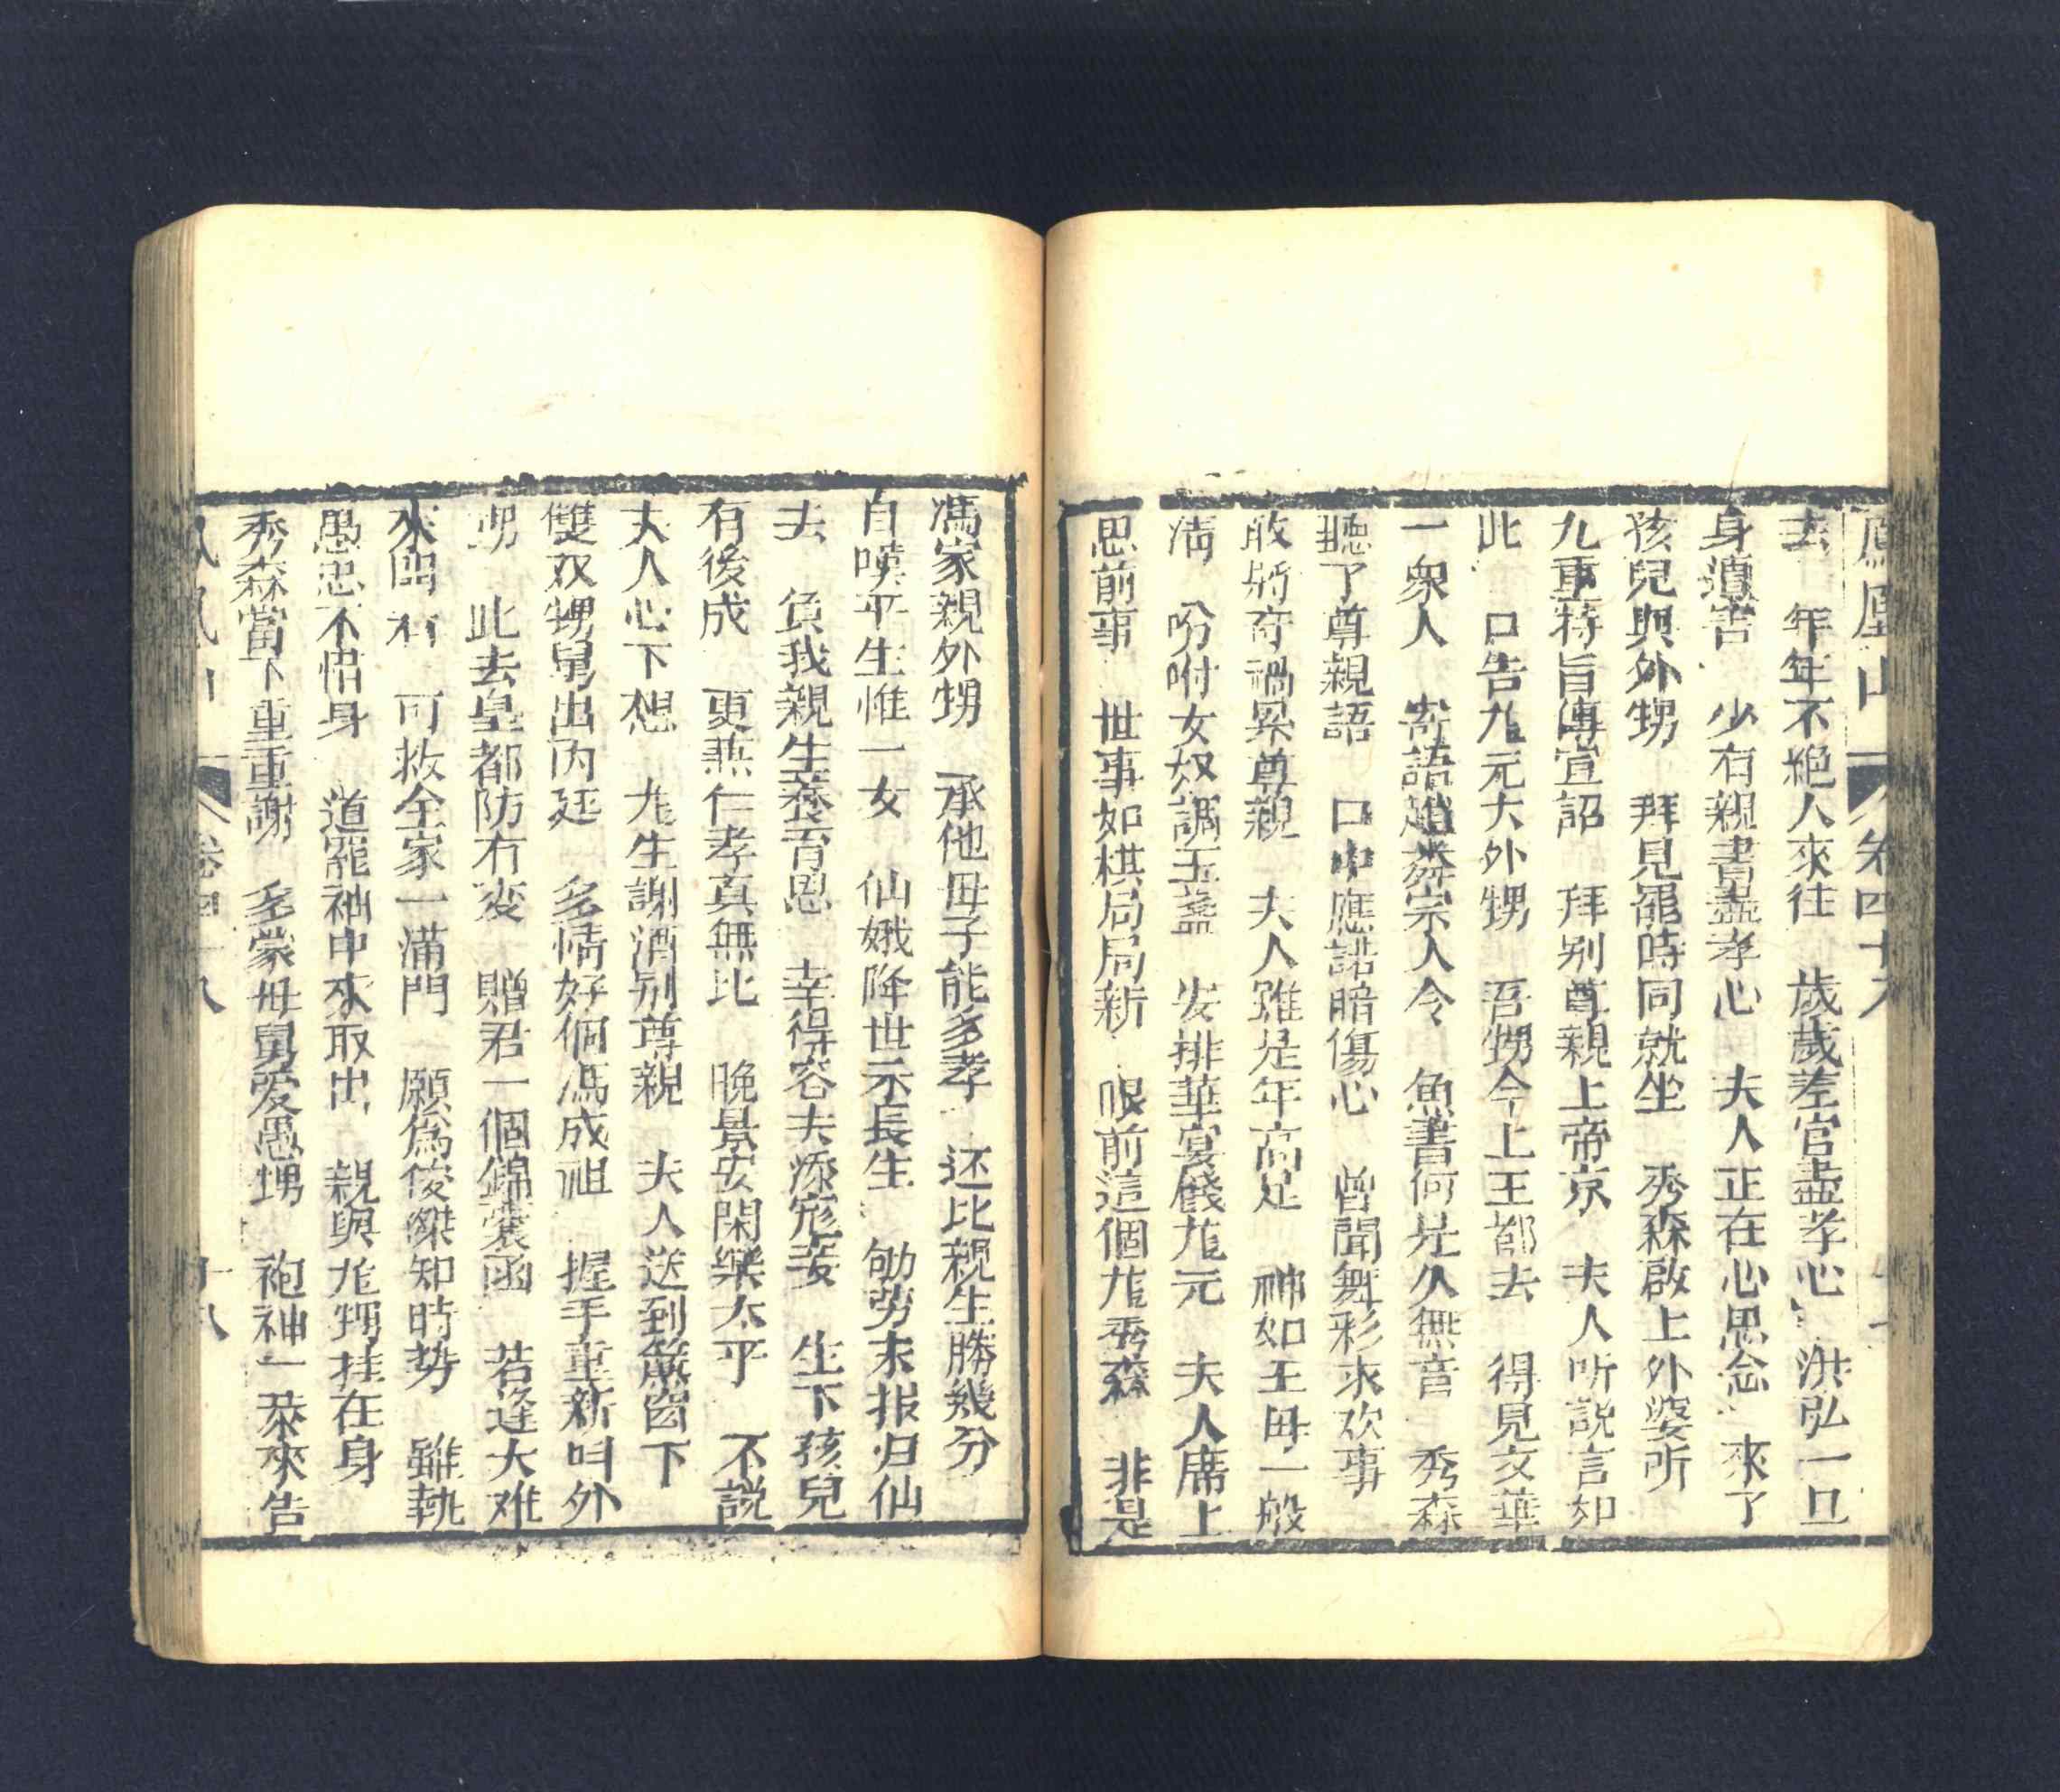 鳳凰山 卷四十八
去 年年不絕人來往 歲歲差官盡孝心 洪弘一旦
身遭害 少有親書盡孝心 夫人正在心思念 來了
孩兒與外甥 拜見罷時同就坐 秀森啟上外婆所
九重特旨傳宣詔 拜别尊親上帝京 夫人听説言如
此 口告九元大外甥 吾甥今上王都去 得見文華
一衆人 寄語趙 宗人令 魚書何是久無音 秀森
聽了尊親語 口中應諾暗傷心 曾聞舞彩求欢事
敢將奇禍累尊親 夫人雖是年高足 神如王母一般
清 吩咐女奴調玉盞 安排華宴餞九元 夫人席上
思前事 世事如棋局局新 眼前這個九秀森 非是
馮家親外甥 承他母子能多孝 还比親生勝幾分
自嘆平生惟一女 仙娥降世示長生 劬劳未报归仙
去 負我親生養育恩 幸得容夫添寵妾 生下孩兒
有後成 更燕仁孝真無比 晚景安閑樂太平 不説
夫人心下想 九生謝酒别尊親 夫人送到 窗下
雙双甥舅出內廷 多情好個馮成祖 握手重新叫外
甥 此去皇都防有变 贈君一個錦囊函 若逢大难
來 可救全家一滿門 願爲俊傑知時势 雖執
愚忠不惜身 道罷袖中來取出 親與九甥挂在身
秀森當下重重謝 多蒙母舅爱愚甥 袍神一恭來告
鳳凰山 卷四十八 十八